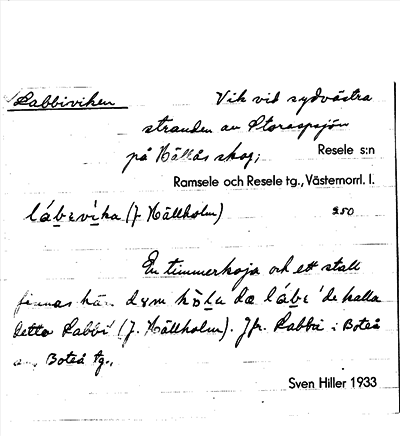 Rabbiviken Vik vid sydvästra
stranden av Storaspsjön
på Hällås skog; Resele s:n
Ramsele och Resele tg., Västernorrl. l.
lábɛvíka (J. Hällholm) 250
En timmerkoja och ett stall
finnas här dɷm kŏla dœ lábɛ 'de kalla
detta Rabbi' (J. Hällholm). Jfr. Rabbi i Boteå
sn, Boteå tg.,
Sven Hiller 1933